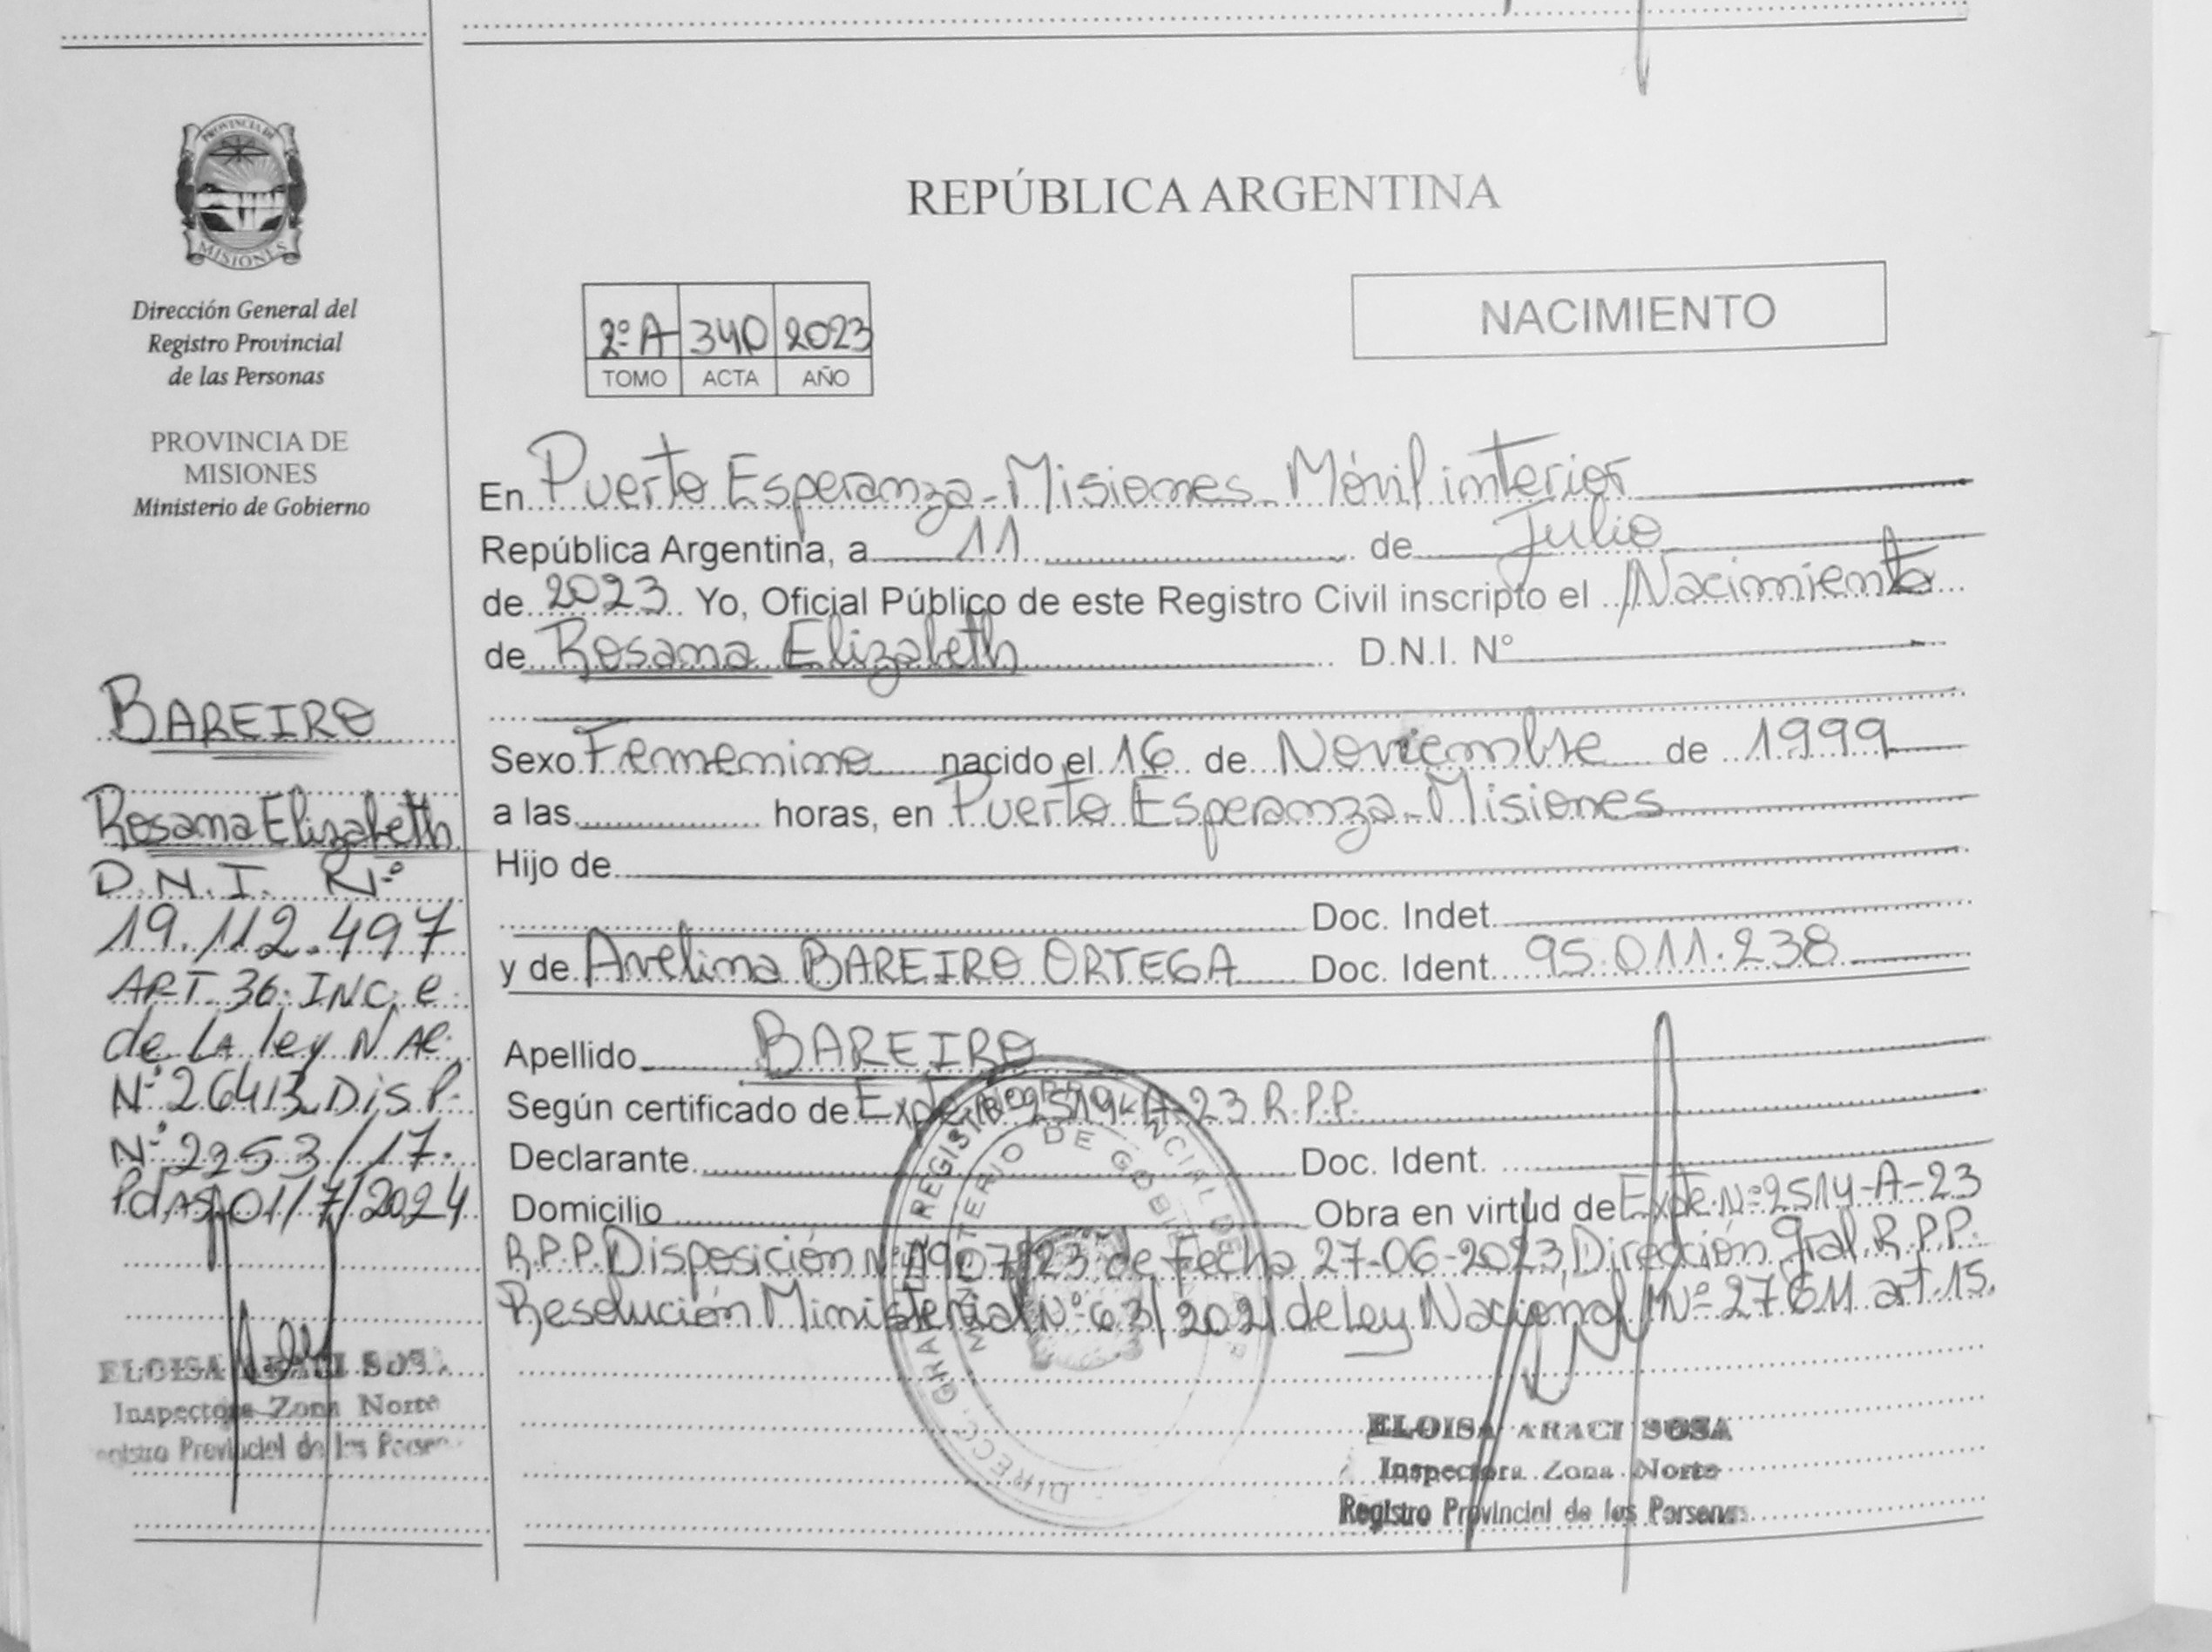 PROVINCIA DE
MISIONES
Dirección General del
Registro Provincial
de las Personas
PROVINCIA DE
MISIONES
Ministerio de Gobierno
BAREIRO
Rosana Elizabeth
D.N.I. Nº
19.112.497
ART. 36. INC. e
de LA ley NAC.
Nº 26413 Disp.
Nº 2253/17.
Pdas 01/7/2024
ELOISA ARACI SOSA
Inspectora Zona Norte
Registro Provincial de las Personas
REPÚBLICA ARGENTINA
2º A 340 2023
TOMO ACTA AÑO
NACIMIENTO
En Puerto Esperanza - Misiones - Móvil interior
República Argentina, a 11 de Julio
de 2023 Yo, Oficial Público de este Registro Civil inscripto el Nacimiento
de Rosana Elizabeth D.N.I. Nº
Sexo Femenino nacido el 16 de Noviembre de 1999
a las horas, en Puerto Esperanza - Misiones
Hijo de
Doc. Indet.
y de Avelina BAREIRO ORTEGA Doc. Ident. 95.011.238
Apellido BAREIRO
Según certificado de Expte Nº 2514-A-23 R.P.P.
Declarante Doc. Ident.
Domicilio Obra en virtud de Expte. Nº 2514-A-23
R.P.P. Disposición Nº 1907/23 de Fecha 27-06-2023, Dirección Gral. R.P.P.
Resolución Ministerial Nº 63/2021 de Ley Nacional Nº 27611 art. 15.
MINISTERIO DE
ELOISA ARACI SOSA
Inspectora Zona Norte
Registro Provincial de las Personas